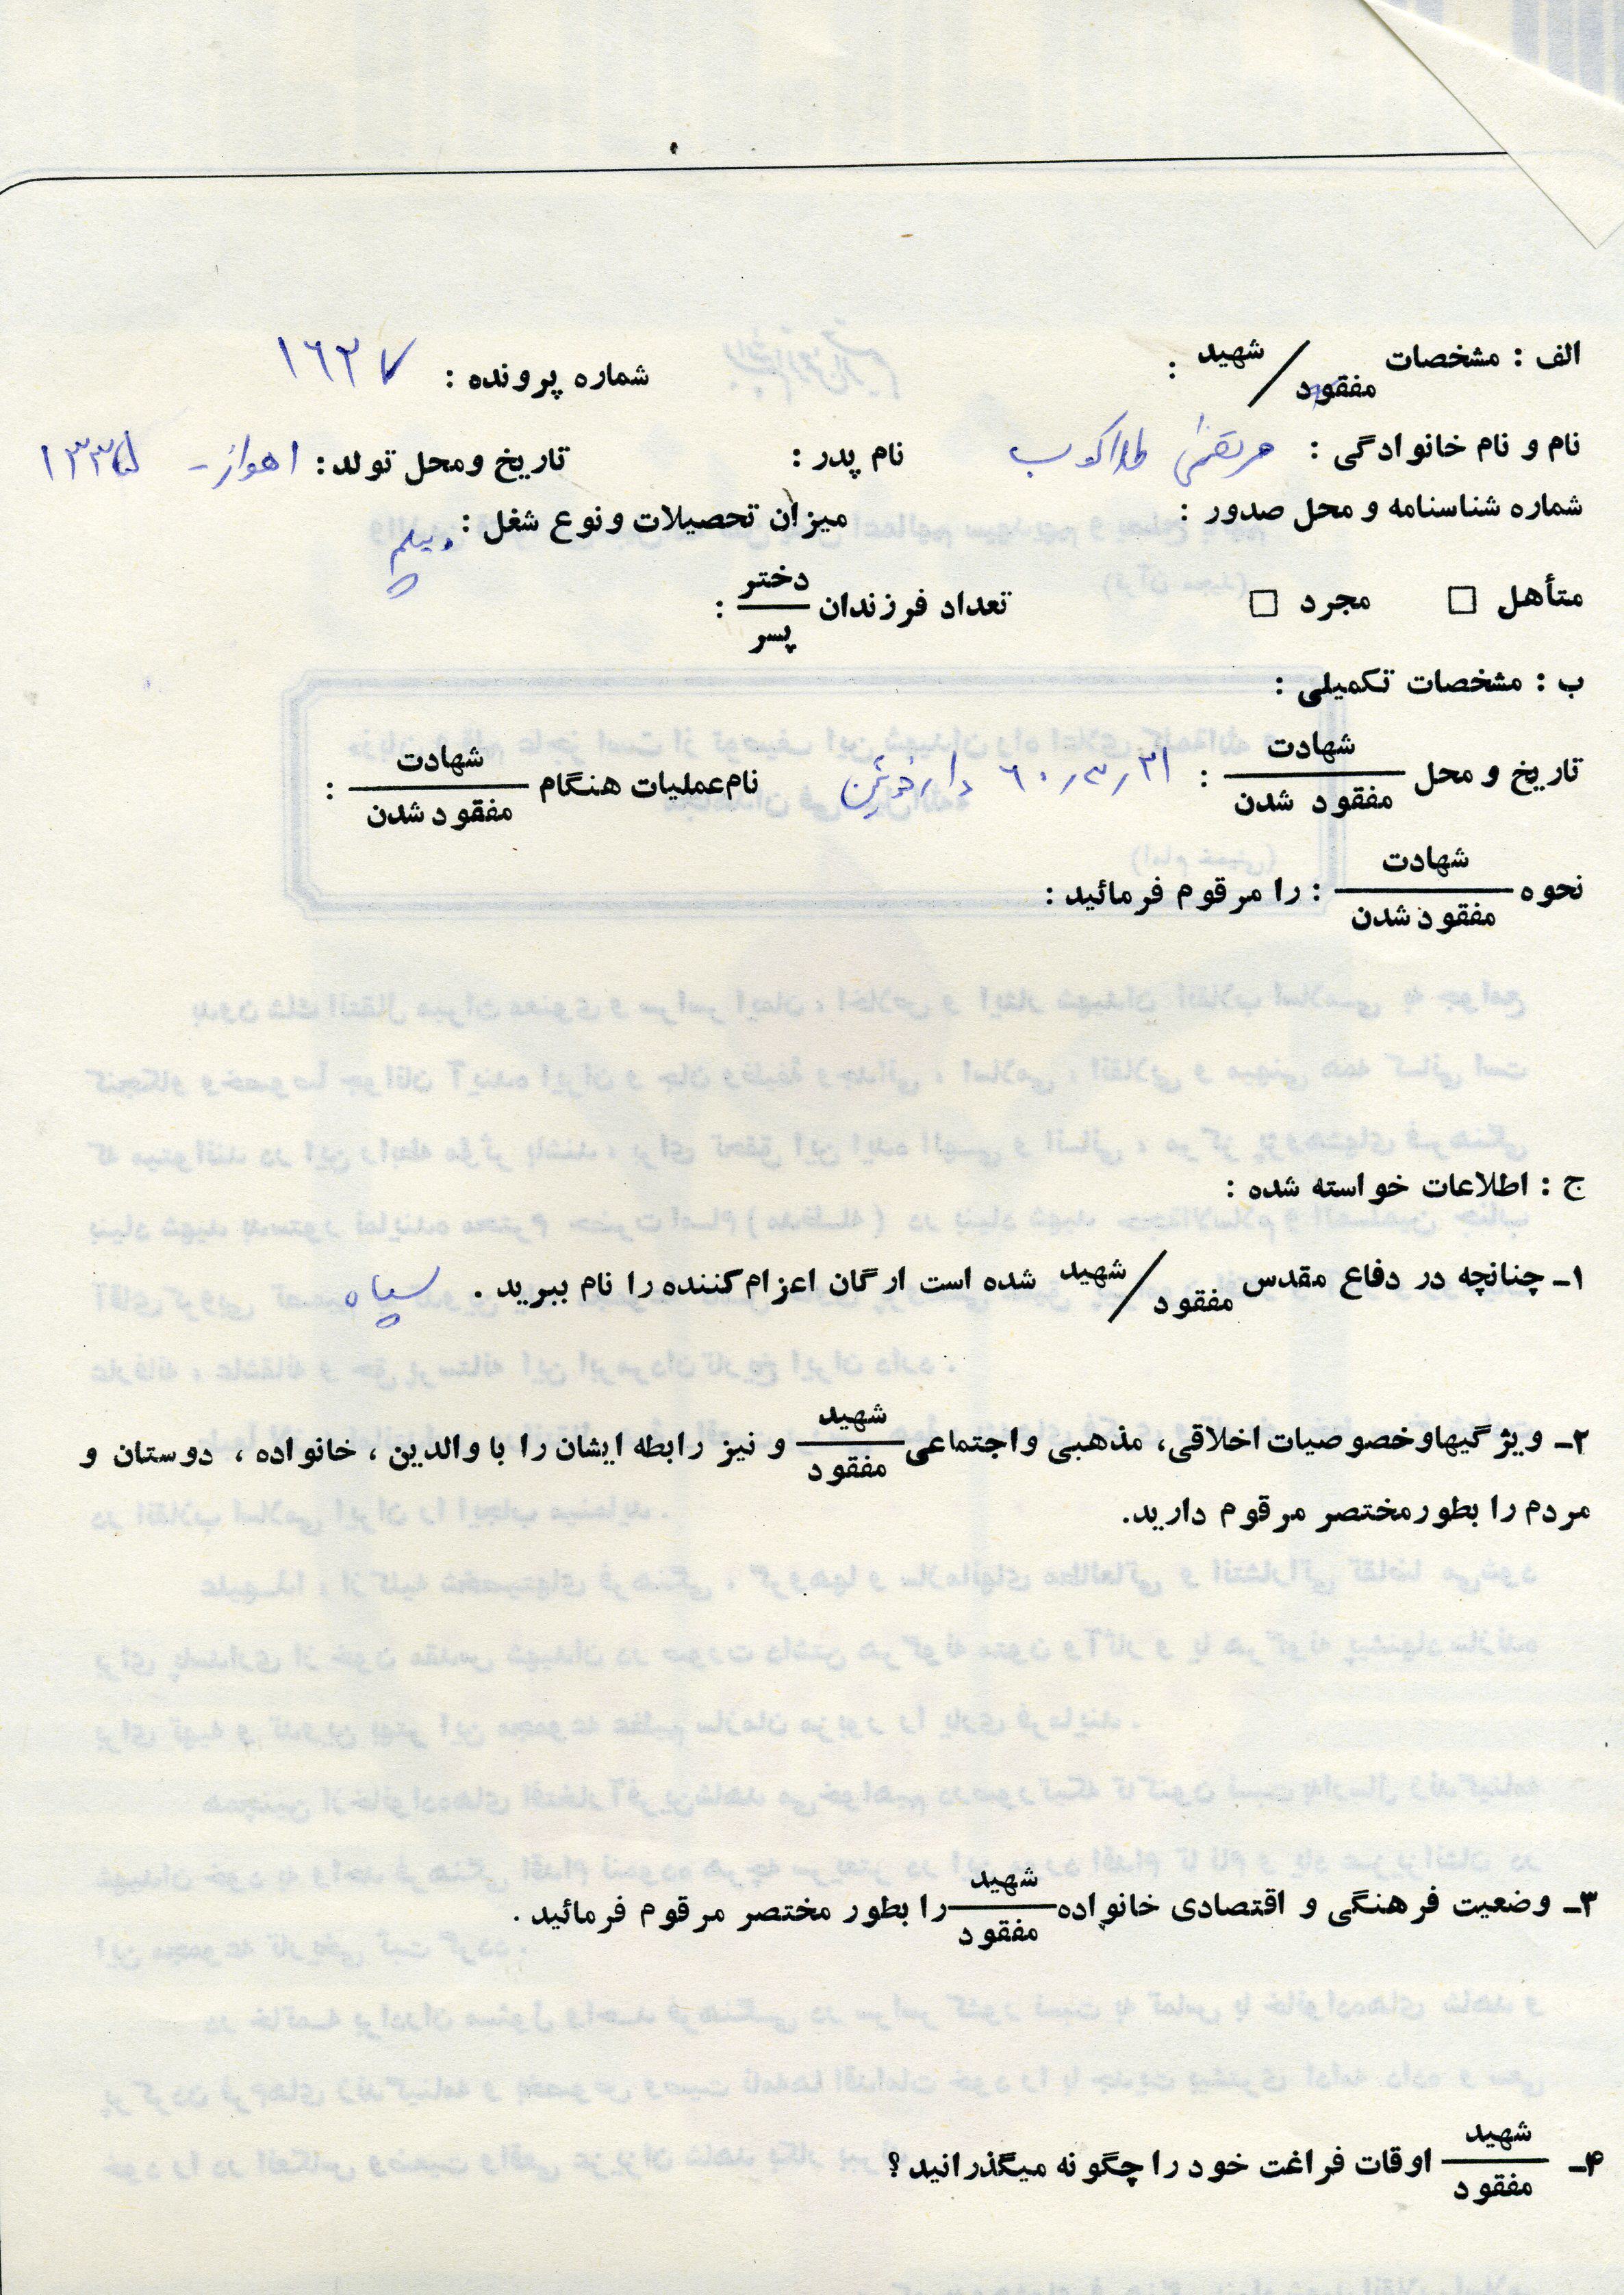 الف : مشخصات شهید / مفقود : شماره پرونده : ١٦٢٧
نام و نام خانوادگی : مرتضی طلاکوب نام پدر : تاریخ ومحل تولد : اهواز - ١٣٣٥
شماره شناسنامه و محل صدور : میزان تحصیلات و نوع شغل : دیپلم
متأهل □ مجرد □ تعداد فرزندان دختر / پسر :
ب : مشخصات تکمیلی :
تاریخ و محل شهادت / مفقود شدن : ٦٠٫٣٫٣١ دارخوئین نام عملیات هنگام شهادت / مفقود شدن :
نحوه شهادت / مفقود شدن : را مرقوم فرمائید :
ج : اطلاعات خواسته شده :
۱ـ چنانچه در دفاع مقدس شهید / مفقود شده است ارگان اعزام کننده را نام ببرید . سپاه
۲ـ ویژگیها وخصوصیات اخلاقی، مذهبی واجتماعی شهید / مفقود و نیز رابطه ایشان را با والدین ، خانواده ، دوستان و
مردم را بطورمختصر مرقوم دارید.
۳ـ وضعیت فرهنگی و اقتصادی خانواده شهید / مفقود را بطور مختصر مرقوم فرمائید .
۴ـ شهید / مفقود اوقات فراغت خود را چگونه میگذرانید ؟